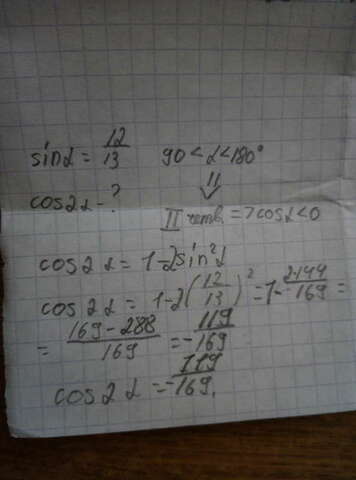 sinα = 12/13   90 < α < 180°
cos2α - ?   ⇓
II четв. => cosα < 0
cos2α = 1-2sin²α
cos2α = 1-2(12/13)² = 1- 2·144/169 =
= 169-288/169 = -119/169
cos2α = -119/169.